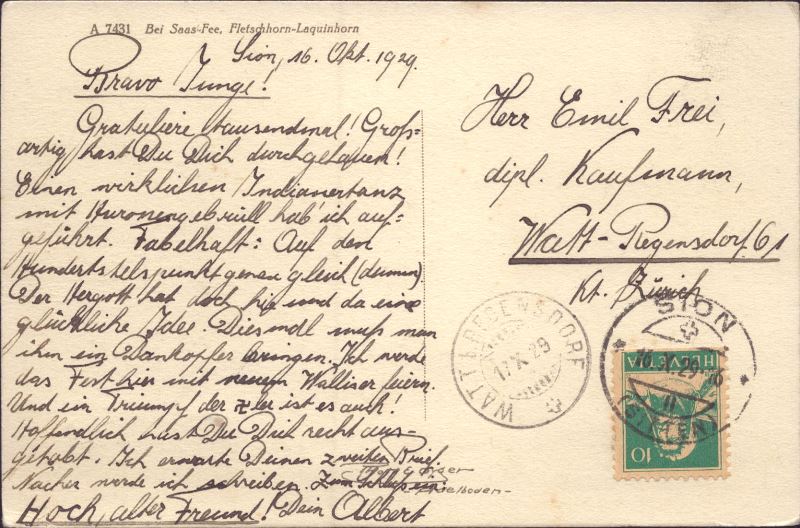 A 7431 Bei Saas-Fee, Fletschhorn-Laquinhorn
Sion, 16. Okt. 1929.
Bravo Junge!
Gratuliere tausendmal! Groß-
artig hast Du Dich durchgehauen!
Einen wirklichen Indianertanz
mit Huronengebrüll hab' ich auf-
geführt. Fabelhaft: Auf den
Hundertstelspunkt genau gleich
Der Hergott hat doch hie und da eine
glückliche Idee. Diesmal muß man
ihm ein Dankopfer bringen. Ich werde
das Fest hier mit neuem Walliser feiern.
Und ein Triumpf der er ist es auch!
Hoffendlich hast Du Dich recht aus-
getobt. Ich erwarte Deinen zweiten Brief.
Nacher werde ich schreiben.
Hoch, alter Freund! Dein Albert
Herr Emil Frei,
dipl. Kaufmann,
Watt-Regensdorf 61
Kt. Zürich
WATT (REGENSDORF)
17.X.29
SION
16.X.29
HELVETIA
10